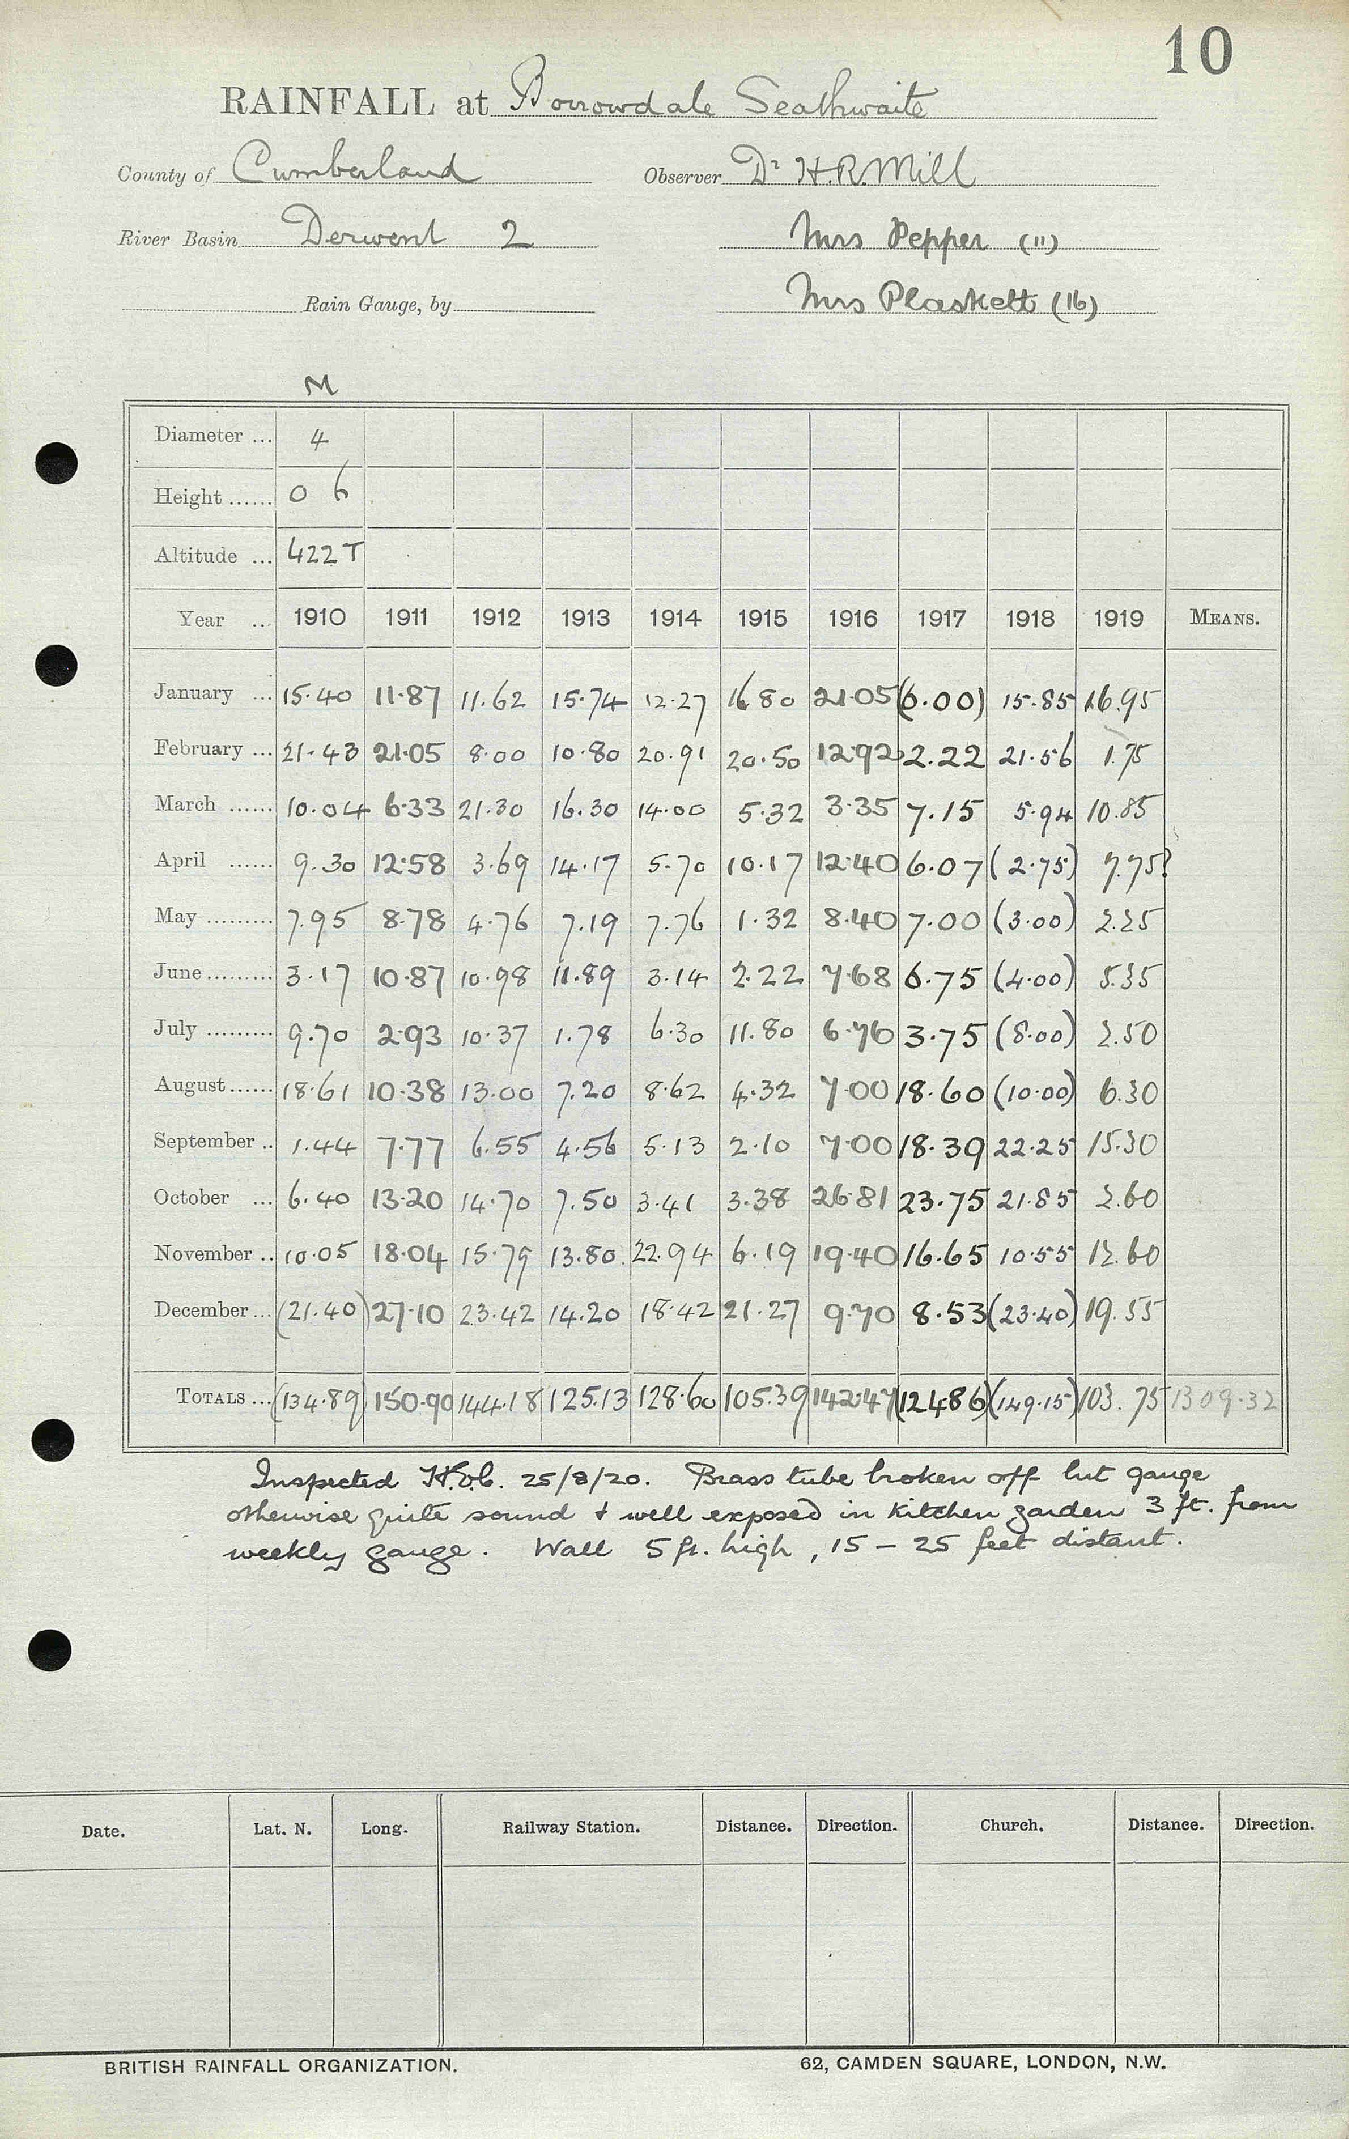 10
RAINFALL at Borrowdale Seathwaite
County of Cumberland Observer Dr H.R. Mill
River Basin Derwent 2 Mrs Pepper (11)
Rain Gauge, by Mrs Plaskett (16)
M
Diameter ... 4
Height ...... 0 6
Altitude ... 422 T
Year ... 1910 1911 1912 1913 1914 1915 1916 1917 1918 1919 MEANS.
January ... 15.40 11.87 11.62 15.74 12.27 16.80 21.05 (6.00) 15.85 16.95
February ... 21.43 21.05 8.00 10.80 20.91 20.50 12.92 2.22 21.56 1.75
March ...... 10.04 6.33 21.30 16.30 14.00 5.32 3.35 7.15 5.94 10.85
April ...... 9.30 12.58 3.69 14.17 5.70 10.17 12.40 6.07 (2.75) 7.75?
May ......... 7.95 8.78 4.76 7.19 7.76 1.32 8.40 7.00 (3.00) 2.25
June ......... 3.17 10.87 10.98 11.89 3.14 2.22 7.68 6.75 (4.00) 5.35
July ......... 9.70 2.93 10.37 1.78 6.30 11.80 6.76 3.75 (8.00) 2.50
August ...... 18.61 10.38 13.00 7.20 8.62 4.32 7.00 18.60 (10.00) 6.30
September .. 1.44 7.77 6.55 4.56 5.13 2.10 7.00 18.39 22.25 15.30
October ... 6.40 13.20 14.70 7.50 3.41 3.38 26.81 23.75 21.85 2.60
November .. 10.05 18.04 15.79 13.80 22.94 6.19 19.40 16.65 10.55 12.60
December ... (21.40) 27.10 23.42 14.20 18.42 21.27 9.70 8.53 (23.40) 19.55
TOTALS ... (134.89) 150.90 144.18 125.13 128.60 105.39 142.47 (124.86) (149.15) 103.75 1309.32
Inspected 25/8/20. Brass tube broken off but gauge
otherwise quite sound & well exposed in kitchen garden 3 ft. from
weekly gauge. Wall 5 ft. high, 15 – 25 feet distant.
Date. Lat. N. Long. Railway Station. Distance. Direction. Church. Distance. Direction.
BRITISH RAINFALL ORGANIZATION. 62, CAMDEN SQUARE, LONDON, N.W.